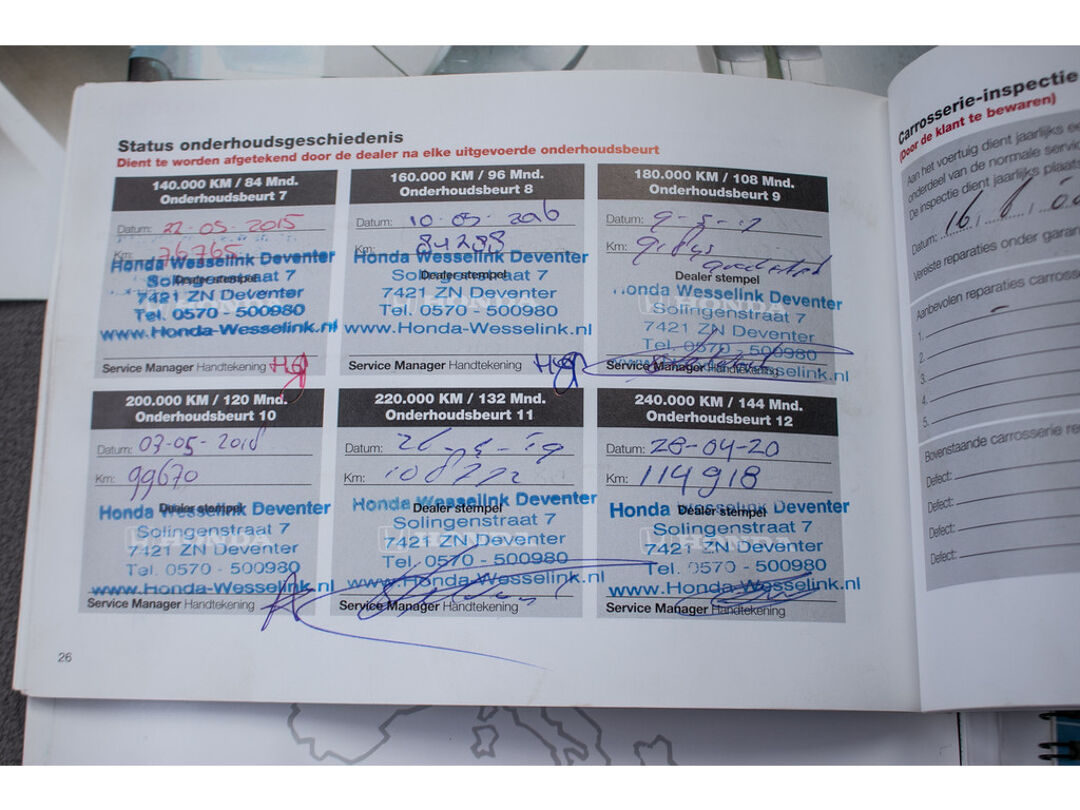 Status onderhoudsgeschiedenis
Dient te worden afgetekend door de dealer na elke uitgevoerde onderhoudsbeurt
140.000 KM / 84 Mnd.
Onderhoudsbeurt 7
Datum: 22-05-2015
Km: 76765
Honda Wesselink Deventer
Dealer stempel
Solingenstraat 7
7421 ZN Deventer
HONDA
Tel. 0570 - 500980
www.Honda-Wesselink.nl
Service Manager Handtekening
160.000 KM / 96 Mnd.
Onderhoudsbeurt 8
Datum: 10-05-2016
Km: 84288
Honda Wesselink Deventer
Dealer stempel
Solingenstraat 7
7421 ZN Deventer
HONDA
Tel. 0570 - 500980
www.Honda-Wesselink.nl
Service Manager Handtekening
180.000 KM / 108 Mnd.
Onderhoudsbeurt 9
Datum: 9-5-17
Km:
Dealer stempel
Honda Wesselink Deventer
HONDA
Solingenstraat 7
7421 ZN Deventer
Tel. 0570 - 500980
www.Honda-Wesselink.nl
Service Manager Handtekening
200.000 KM / 120 Mnd.
Onderhoudsbeurt 10
Datum: 03-05-2018
Km: 99670
Dealer stempel
Honda Wesselink Deventer
Solingenstraat 7
HONDA
7421 ZN Deventer
Tel. 0570 - 500980
www.Honda-Wesselink.nl
Service Manager Handtekening
220.000 KM / 132 Mnd.
Onderhoudsbeurt 11
Datum: 26
Km:
Honda Wesselink Deventer
Dealer stempel
Solingenstraat 7
HONDA
7421 ZN Deventer
Tel. 0570 - 500980
www.Honda-Wesselink.nl
Service Manager Handtekening
240.000 KM / 144 Mnd.
Onderhoudsbeurt 12
Datum: 28-04-20
Km: 114918
Honda Wesselink Deventer
Dealer stempel
Solingenstraat 7
HONDA
7421 ZN Deventer
Tel. 0570 - 500980
www.Honda-Wesselink.nl
Service Manager Handtekening
26
Carrosserie-inspectie
(Door de klant te bewaren)
Aan het voertuig dient jaarlijks
onderdeel van de normale
De inspectie dient jaarlijks
Datum: 16 /
Vereiste reparaties onder
Aanbevolen reparaties
1.
2.
3.
4.
5.
Bovenstaande carrosserie
Defect:
Defect:
Defect:
Defect: